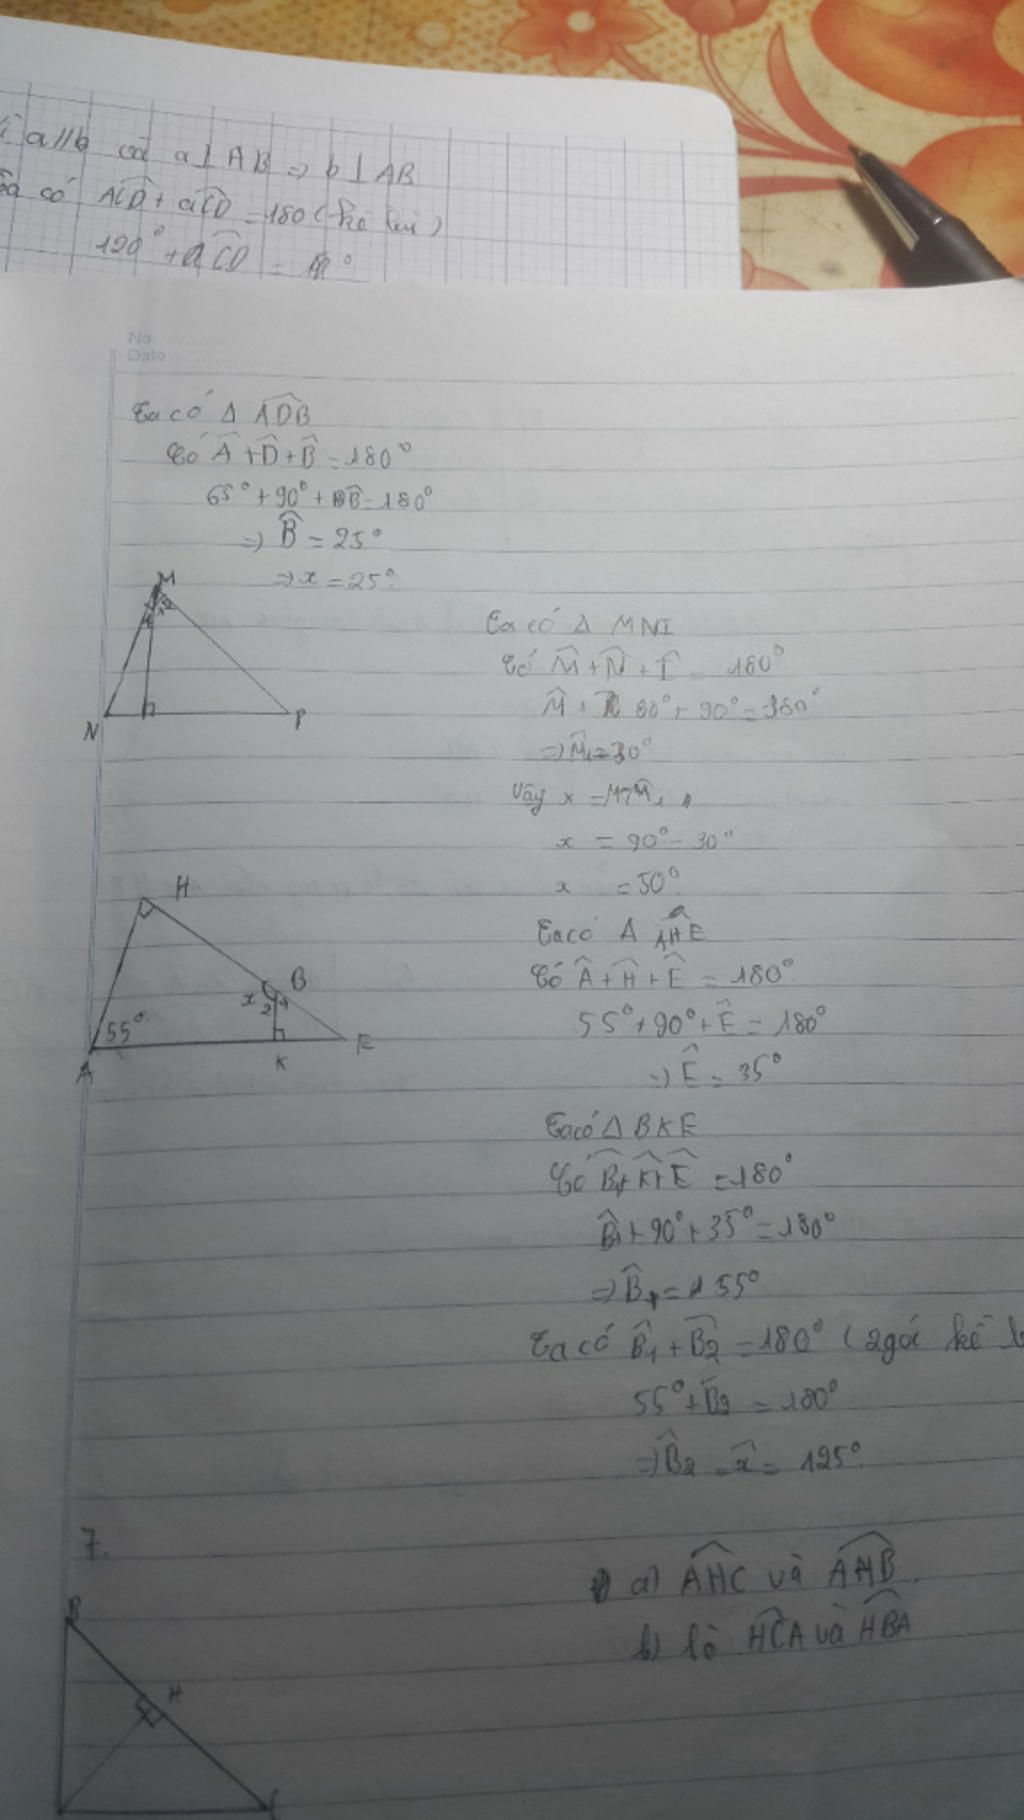 a//b và a⊥AB ⇒ b⊥AB
có ACD + aCD = 180 (kề bù)
120° + aCD = °
No.
Date
Ta có Δ ADB
Có Â + D̂ + B̂ = 180°
65° + 90° + B̂ = 180°
⇒ B̂ = 25°
⇒ x = 25°
M
1 x 2
N P
Ta có Δ MNI
Có M̂ + N̂ + Î = 180°
M̂ + 60° + 90° = 180°
⇒ M̂₁ = 30°
Vậy x =
x = 90° - 30°
x = 50°
H
B
x 2 1
55°
A K E
Ta có Δ AHE
Có Â + Ĥ + Ê = 180°
55° + 90° + Ê = 180°
⇒ Ê = 35°
Ta có Δ BKE
Có B̂₁ + K̂ + Ê = 180°
B̂₁ + 90° + 35° = 180°
⇒ B̂₁ = 55°
Ta có B̂₁ + B̂₂ = 180° (2 góc kề
55° + B̂₂ = 180°
⇒ B̂₂ = x̂ = 125°
7.
a) AHC và AHB
b) là HCA và HBA
B
H
C